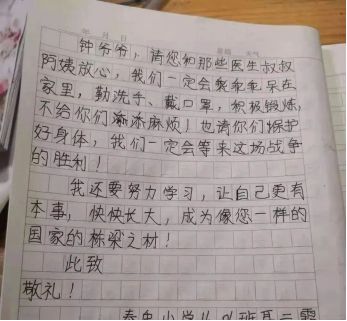 年 月 日 星期 天气
钟爷爷，请您和那些医生叔叔
阿姨放心，我们一定会乖乖呆在
家里，勤洗手、戴口罩，积极锻炼，
不给你们添添麻烦！也请你们保护
好身体，我们一定会等来这场战争
的胜利！
我还要努力学习，让自己更有
本事，快快长大，成为像您一样的
国家的栋梁之材！
此致
敬礼！
小学
班